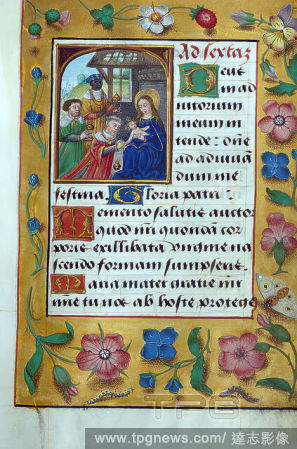 Ad sextaz
Deus
in ad
iutorium
meum in
tende: dne
ad adiuvā
dum me
festina Gloria patri:
Memento salutis auctor
quod nrī quondam cor
poris ex illibata virgine na
scendo formam sumpseris
Maria mater gratie mr̄
nīe tu nos ab hoste protege
TPG
www.tpgnews.com/達志影像